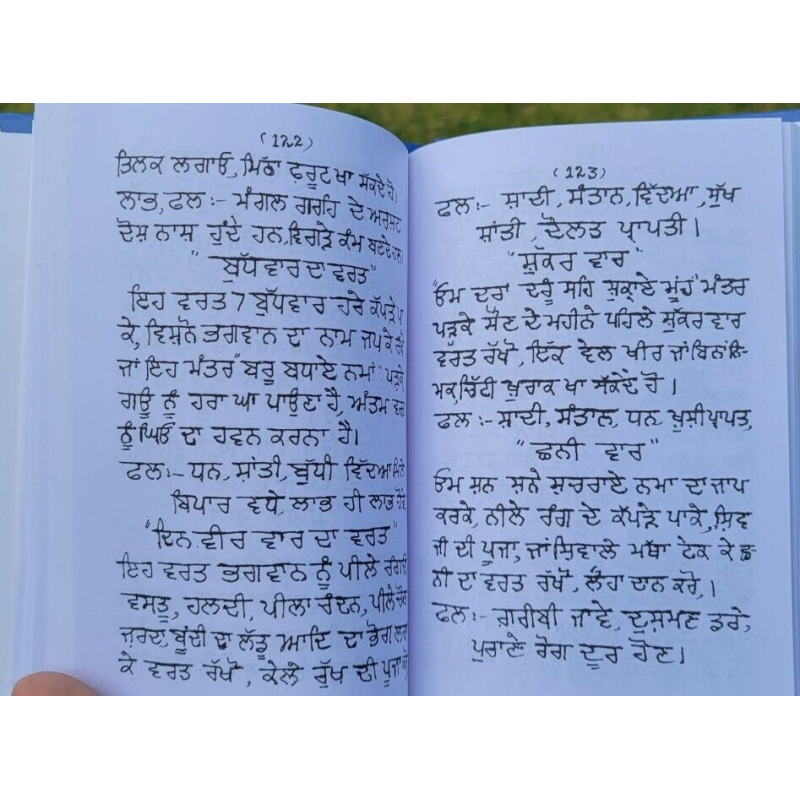 (122)
ਤਿਲਕ ਲਗਾਓ, ਮਿੱਠਾ ਫ਼ਰੂਟ ਖਾ ਸੱਕਦੇ ਹੋ।
ਲਾਭ, ਫਲ :- ਮੰਗਲ ਗਰਹਿ ਦੇ ਅਰਸ਼ਟ
ਦੋਸ਼ ਨਾਸ਼ ਹੁੰਦੇ ਹਨ, ਵਿਗੜੇ ਕੰਮ ਬਣਦੇ ਹਨ।
"ਬੁੱਧਵਾਰ ਦਾ ਵਰਤ"
ਇਹ ਵਰਤ 7 ਬੁੱਧਵਾਰ ਹਰੇ ਕੱਪੜੇ ਪਾ
ਕੇ, ਵਿਸ਼ਨੋ ਭਗਵਾਨ ਦਾ ਨਾਮ ਜਪ ਕੇ ਰੱਖੋ
ਜਾਂ ਇਹ ਮੰਤਰ "ਬਰੂ ਬਧਾਏ ਨਮਾਂ" ਪੜ੍ਹਕੇ,
ਗਊ ਨੂੰ ਹਰਾ ਘਾ ਪਾਉਣਾ ਹੈ, ਅੰਤਮ ਵਰਤ
ਨੂੰ ਘਿਓ ਦਾ ਹਵਨ ਕਰਨਾ ਹੈ।
ਫਲ:- ਧਨ, ਸ਼ਾਂਤੀ, ਬੁੱਧੀ ਵਿੱਦਿਆ ਮਿਲੇ
ਬਿਪਾਰ ਵਧੇ ਲਾਭ ਹੀ ਲਾਭ ਹੋਵੇ
"ਦਿਨ ਵੀਰ ਵਾਰ ਦਾ ਵਰਤ"
ਇਹ ਵਰਤ ਭਗਵਾਨ ਨੂੰ ਪੀਲੇ ਰੰਗ ਦੀ
ਵਸਤੂ, ਹਲਦੀ, ਪੀਲਾ ਚੰਦਨ, ਪੀਲੇ ਚੌਲ
ਜ਼ਰਦਾ, ਬੂੰਦੀ ਦਾ ਲੱਡੂ ਆਦਿ ਦਾ ਭੋਗ ਲਗਾ
ਕੇ ਵਰਤ ਰੱਖੋ, ਕੇਲੇ ਰੁੱਖ ਦੀ ਪੂਜਾ ਕਰੋ
(123)
ਫਲ:- ਸ਼ਾਦੀ, ਸੰਤਾਨ, ਵਿੱਦਿਆ, ਸੁੱਖ
ਸ਼ਾਂਤੀ, ਦੌਲਤ ਪ੍ਰਾਪਤੀ।
"ਸ਼ੁੱਕਰ ਵਾਰ"
"ਓਮ ਦਰਾਂ ਦਰੂੰ ਸਹਿ ਸ਼ੁਕ੍ਰਾਏ ਮੂੰਹ" ਮੰਤਰ
ਪੜ੍ਹਕੇ ਸੌਣ ਦੇ ਮਹੀਨੇ ਪਹਿਲੇ ਸ਼ੁੱਕਰ ਵਾਰ
ਵਰੱਤ ਰੱਖੋ, ਇੱਕ ਵੇਲ ਖੀਰ ਜਾਂ ਬਿਨਾਂ ਨਿ-
ਮਕ, ਚਿੱਟੀ ਖ਼ੁਰਾਕ ਖਾ ਸੱਕਦੇ ਹੋ।
ਫਲ :- ਸ਼ਾਦੀ, ਸੰਤਾਲ, ਧਨ, ਖ਼ੁਸ਼ੀ ਪ੍ਰਾਪਤ,
"ਛਨੀ ਵਾਰ"
ਓਮ ਸ਼ਨ ਸ਼ਨੇ ਸ਼ਚਰਾਏ ਨਮਾ ਦਾ ਜਾਪ
ਕਰਕੇ, ਨੀਲੇ ਰੰਗ ਦੇ ਕੱਪੜੇ ਪਾਕੇ, ਸ਼ਿਵ
ਜੀ ਦੀ ਪੂਜਾ, ਜਾਂ ਸ਼ਿਵਾਲੇ ਮੱਥਾ ਟੇਕ ਕੇ ਛ-
ਨੀ ਦਾ ਵਰਤ ਰੱਖੋ, ਲੋਹਾ ਦਾਨ ਕਰੋ,।
ਫਲ:- ਗ਼ਰੀਬੀ ਜਾਵੇ, ਦੁਸ਼ਮਣ ਡਰੇ,
ਪੁਰਾਣੇ ਰੋਗ ਦੂਰ ਹੋਣ।